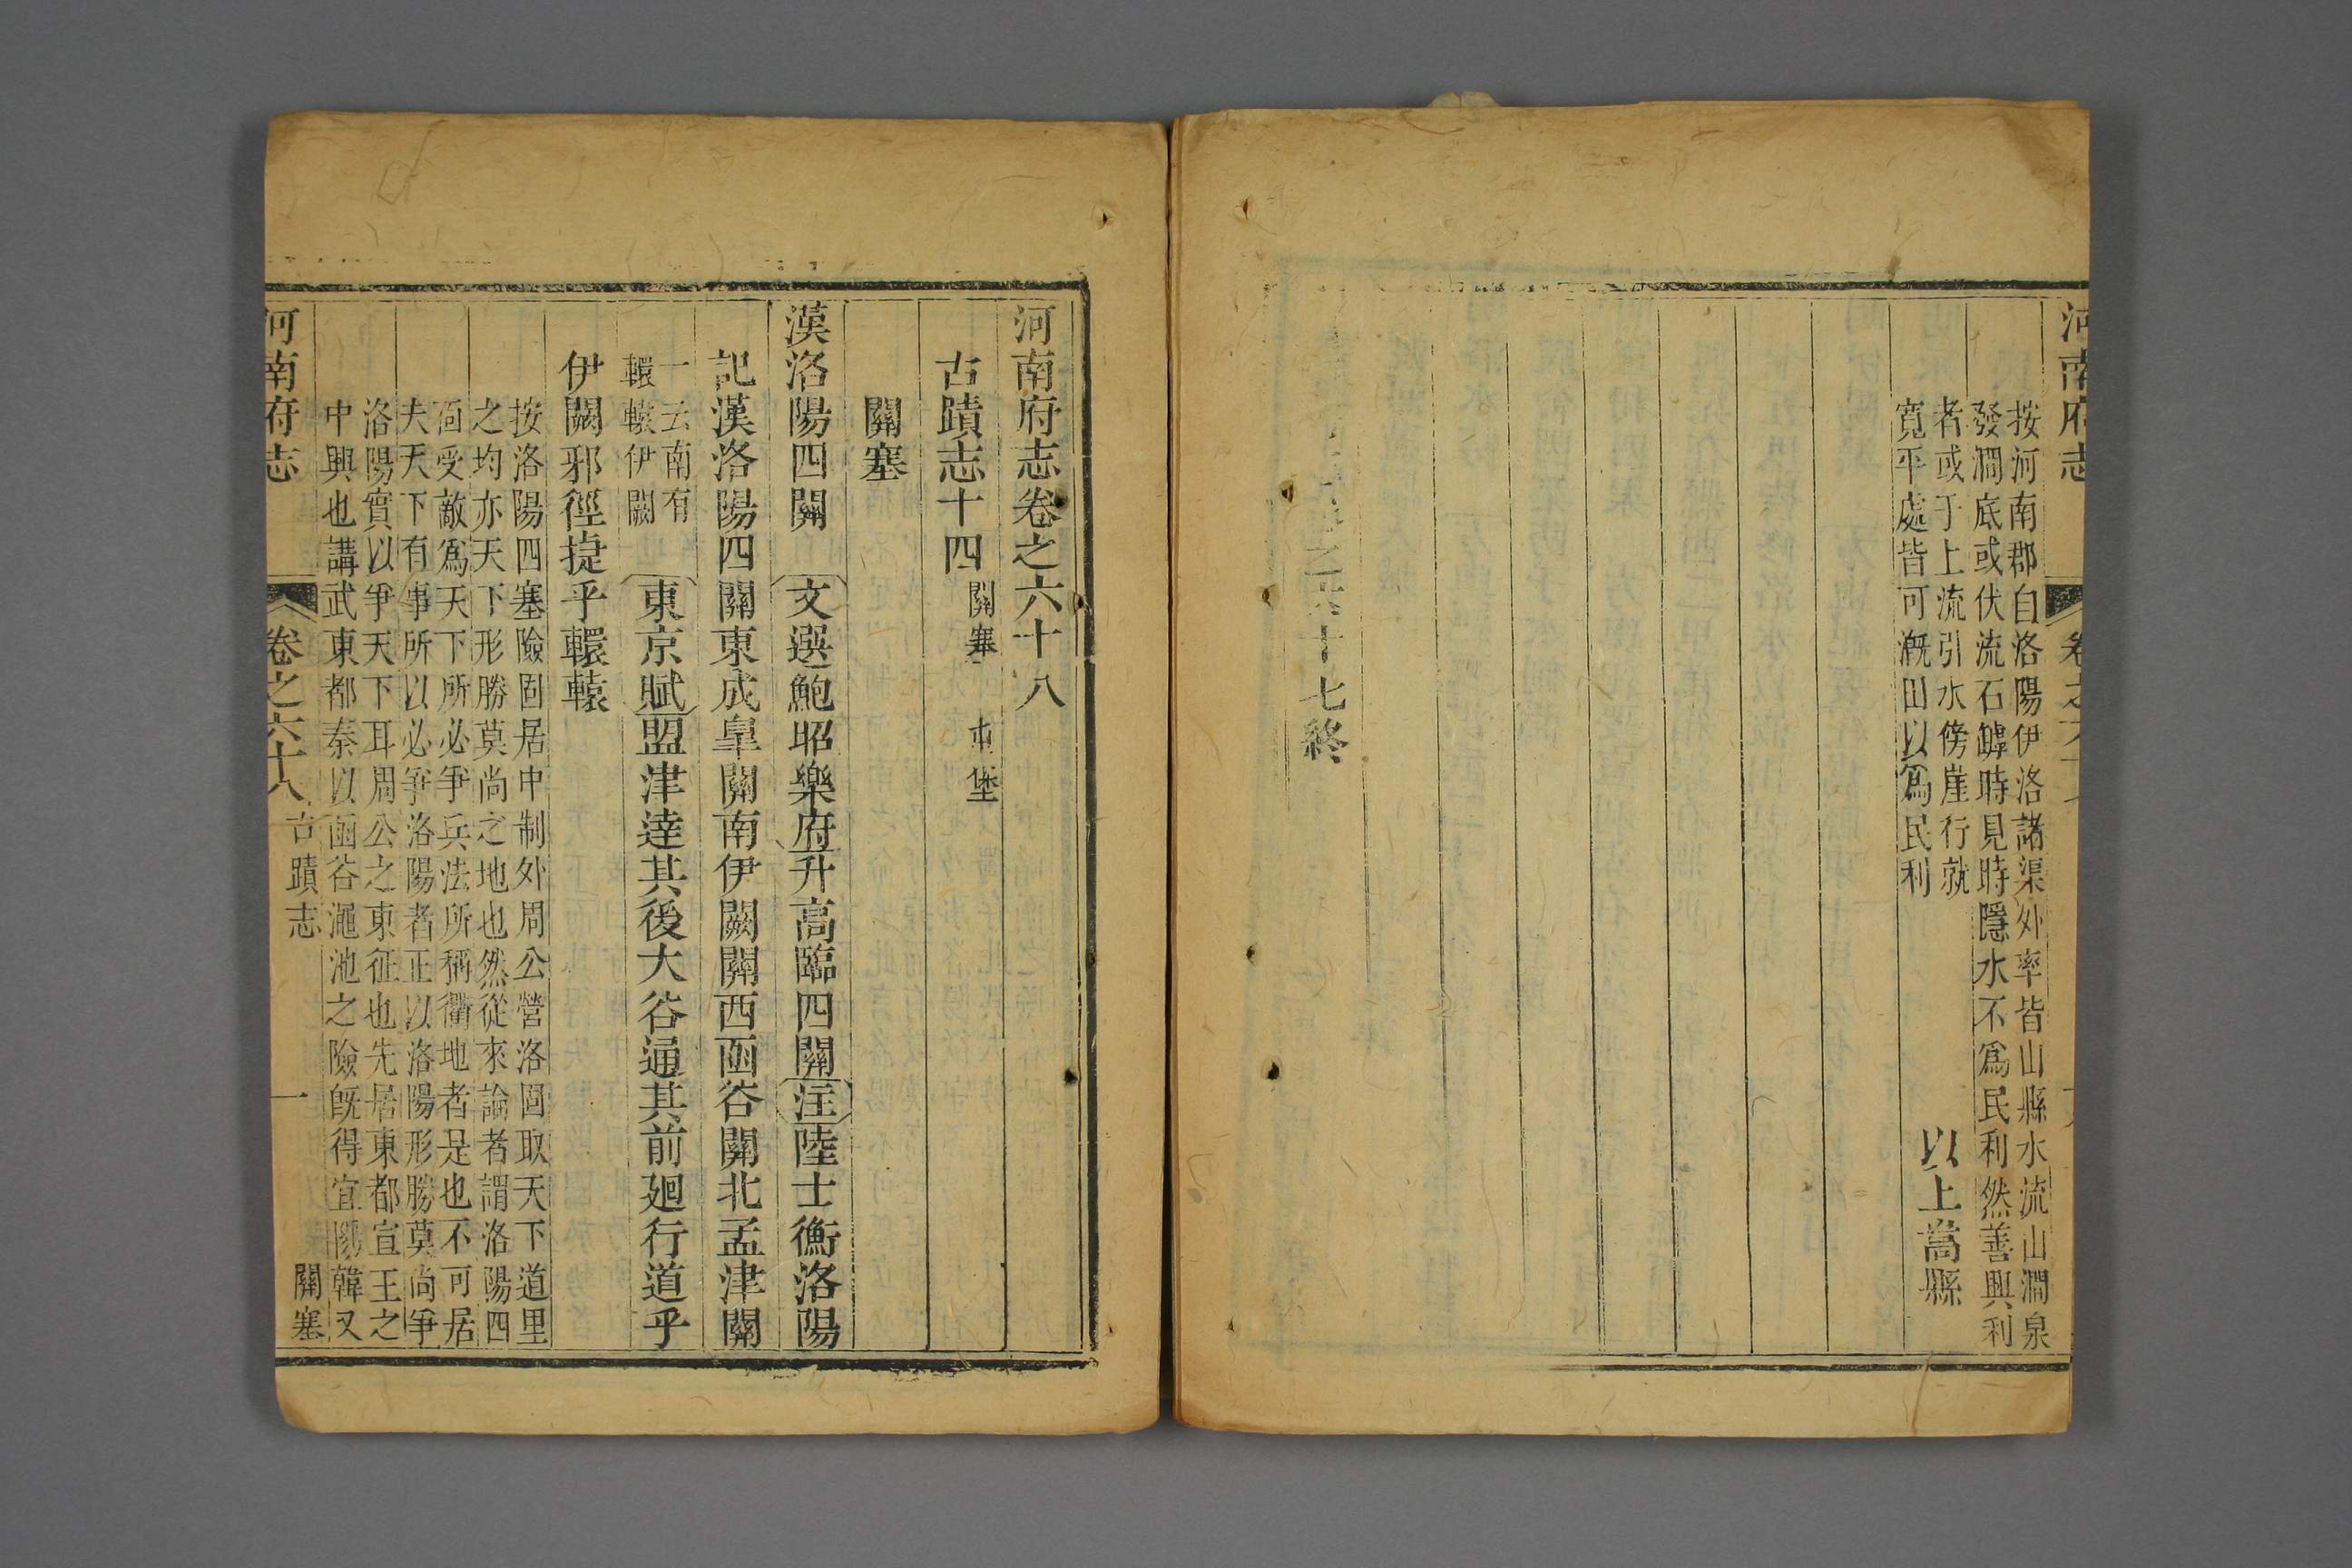 河南府志
卷之六十七
按河南郡自洛陽伊洛諸渠外率皆山縣水流山澗泉
發澗底或伏流石罅時見時隱水不爲民利然善興利
者或于上流引水傍崖行就
寬平處皆可漑田以爲民利
以上嵩縣
之六十七終
河南府志卷之六十八
古蹟志十四
關塞
屯堡
關塞
漢洛陽四關
文選鮑昭樂府升高臨四關注陸士衡洛陽
記漢洛陽四關東成皐關南伊闕關西函谷關北孟津關
一云南有
轘轅伊闕
東京賦盟津達其後大谷通其前廻行道乎
伊闕邪徑捷乎轘轅
按洛陽四塞險固居中制外周公營洛固取天下道里
之均亦天下形勝莫尚之地也然從來論者謂洛陽四
面受敵爲天下所必爭兵法所稱衢地者是也不可居
夫天下有事所以必爭洛陽者正以洛陽形勝莫尚爭
洛陽實以爭天下耳周公之東征也先居東都宣王之
中興也講武東都秦以函谷澠池之險旣得宜陽韓又
河南府志
卷之六十八
古蹟志
關塞
一